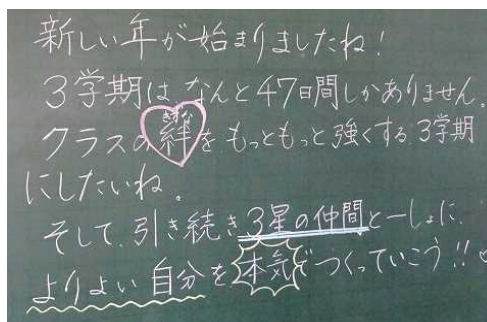 新しい年が始まりましたね!
3学期はなんと47日間しかありません。
クラスの絆をもっともっと強くする3学期
にしたいね。
そして、引き続き3星の仲間と一しょに、
よりよい自分を本気でつくっていこう!!